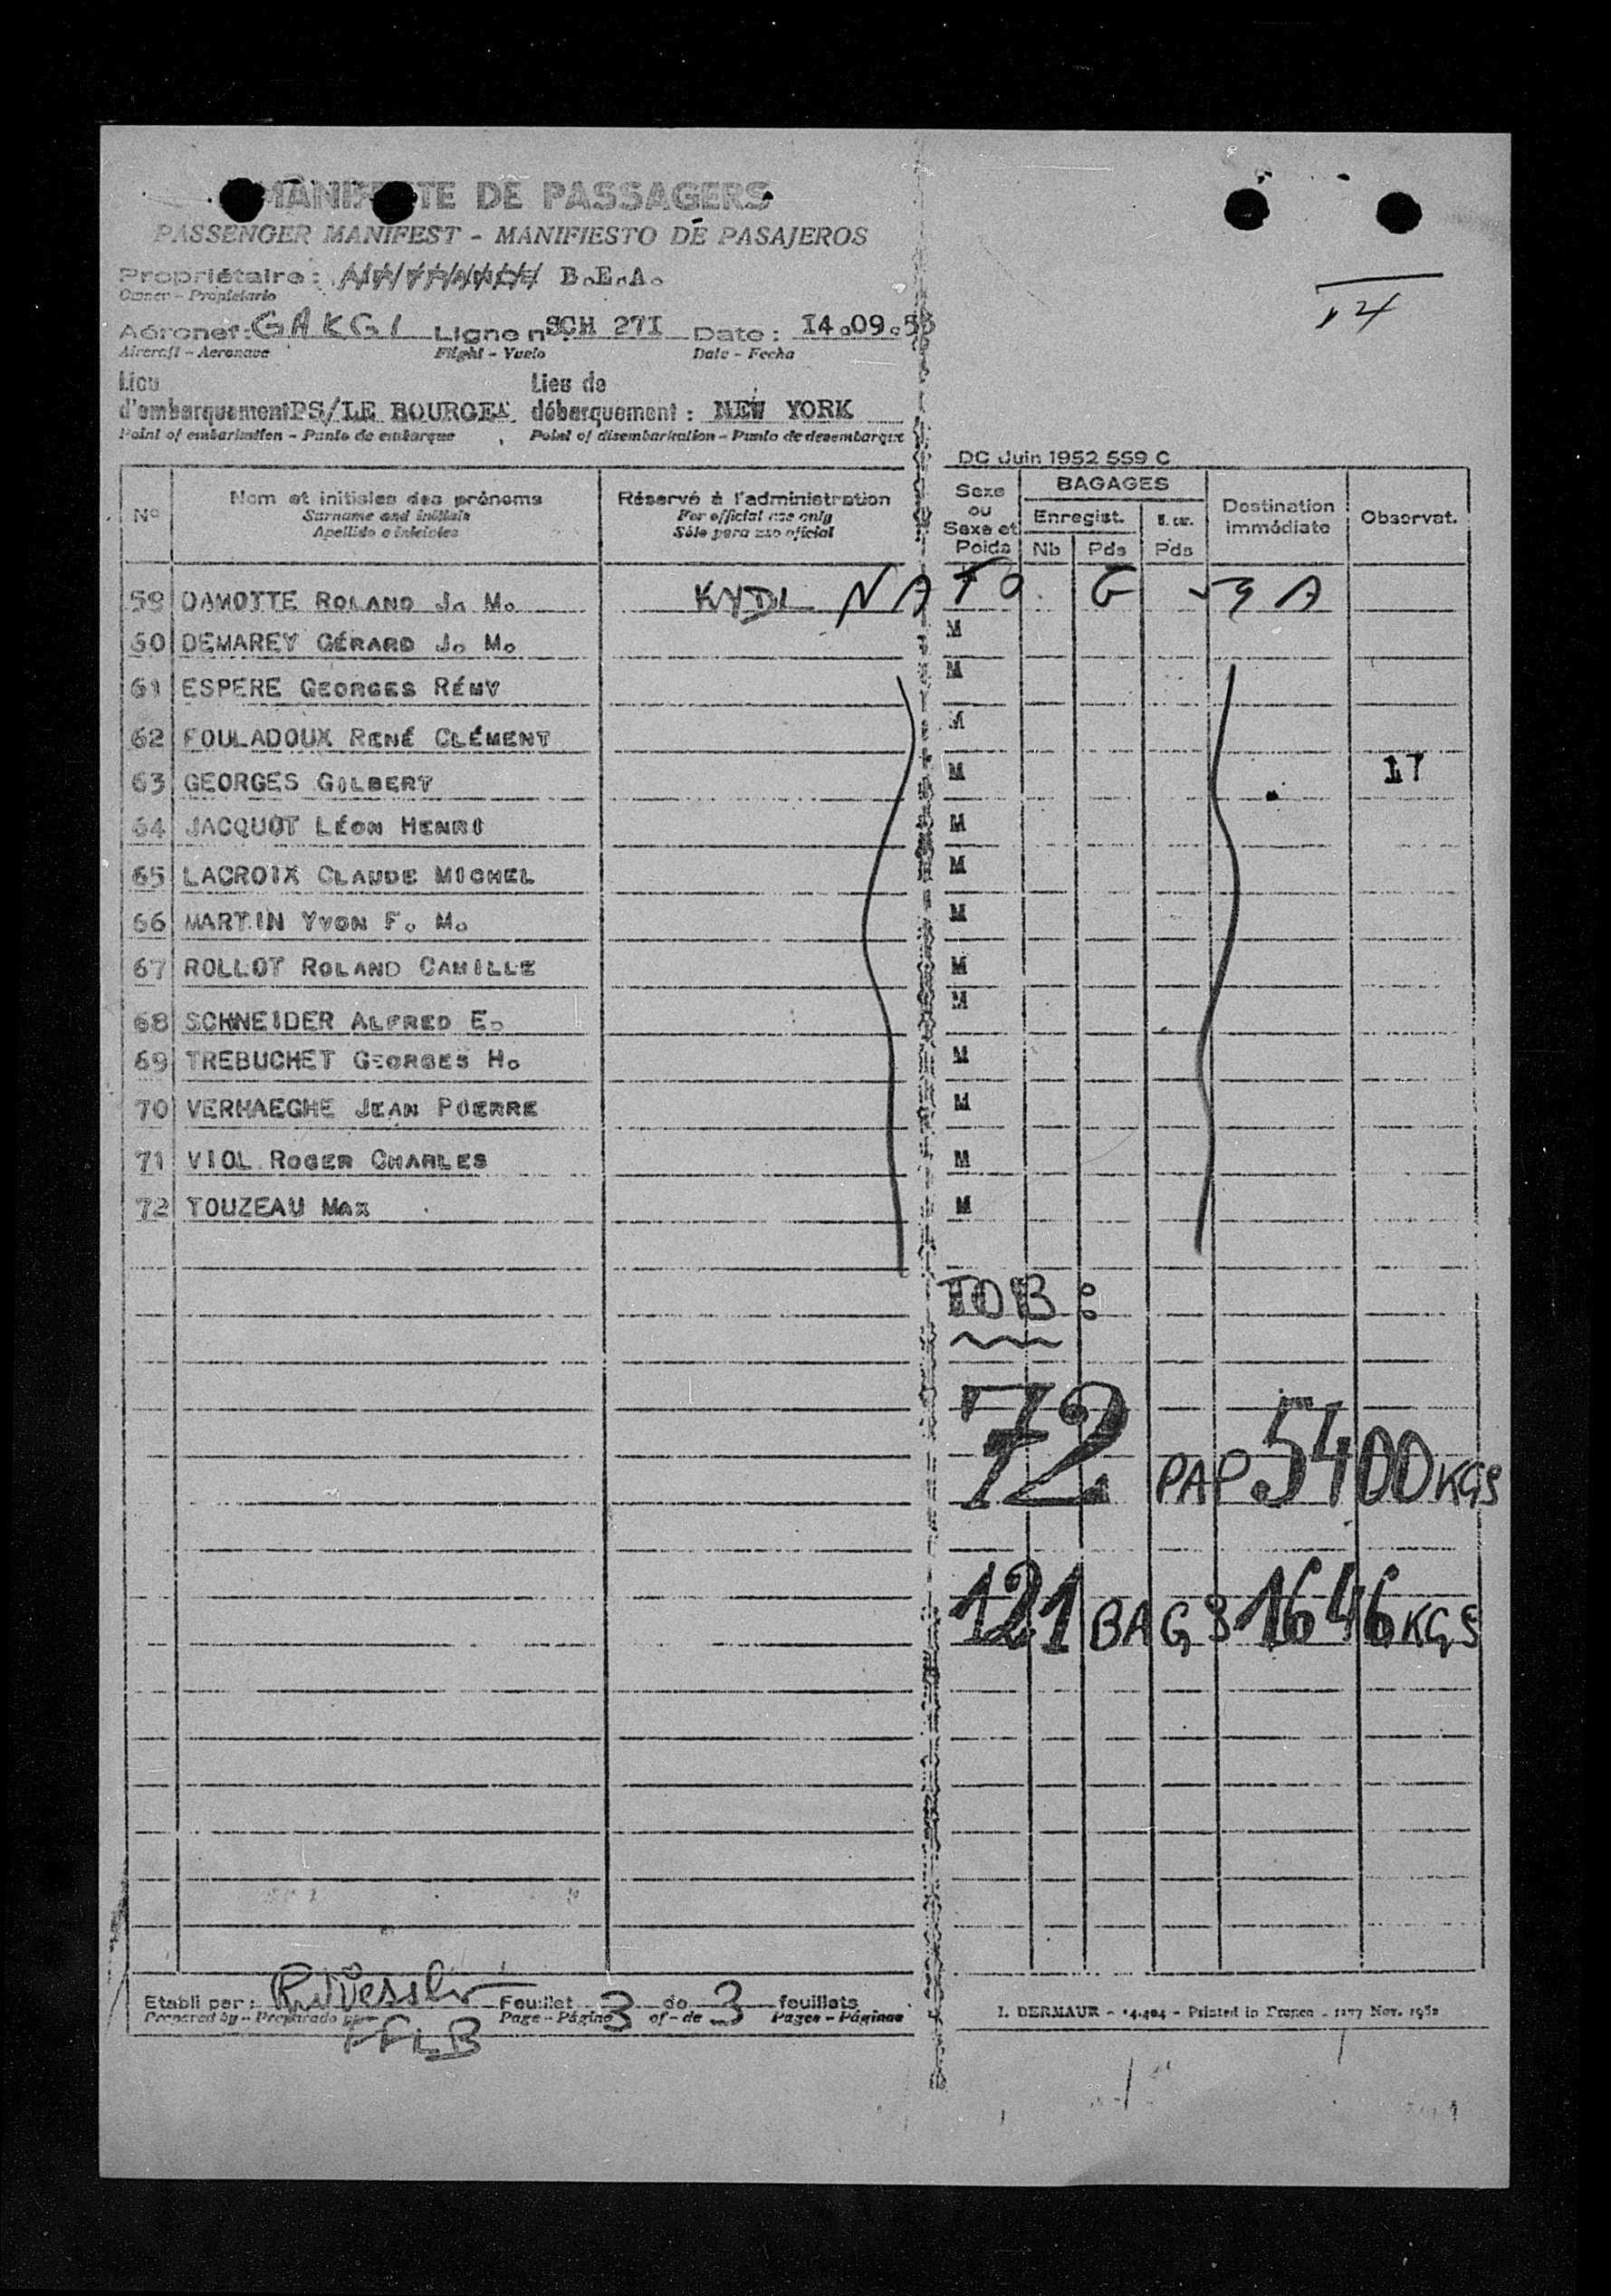 MANIFESTE DE PASSAGERS
PASSENGER MANIFEST - MANIFIESTO DE PASAJEROS
Propriétaire : AIR FRANCE B.E.A.
Owner - Propietario
Aéronef : GAKGI Ligne n° SCH 27I Date : I4.09.53
Aircraft - Aeronave Flight - Vuelo Date - Fecha
Lieu Lieu de
d'embarquement PS/LE BOURGET débarquement : NEW YORK
Point of embarkation - Punto de embarque Point of disembarkation - Punto de desembarque
14
DC Juin 1952 559 C
N° Nom et initiales des prénoms Réservé à l'administration Sexe ou Sexe et Poids BAGAGES Destination immédiate Observat.
Surname and initials For official use only Enregist.
Apellido e iniciales Sólo para uso oficial Nb Pds Pds
59 DAMOTTE ROLAND J. M.
60 DEMAREY GÉRARD J. M. M
61 ESPERE GEORGES RÉMY M
62 FOULADOUX RENÉ CLÉMENT M
63 GEORGES GILBERT M 17
64 JACQUOT LÉON HENRI M
65 LACROIX CLAUDE MICHEL M
66 MARTIN YVON F. M. M
67 ROLLOT ROLAND CAMILLE M
68 SCHNEIDER ALFRED E. M
69 TREBUCHET GEORGES H. M
70 VERHAEGHE JEAN PIERRE M
71 VIOL ROGER CHARLES M
72 TOUZEAU MAX M
TOB :
72 PAP 5400 KGS
121 BAGS 1646 KGS
Etabli par : Feuillet 3 de 3 feuillets
Prepared by - Preparado por Page - Página of - de Pages - Páginas
FFLB
I. DERMAUR - 14.404 - Printed in France - 1277 Nov. 1952